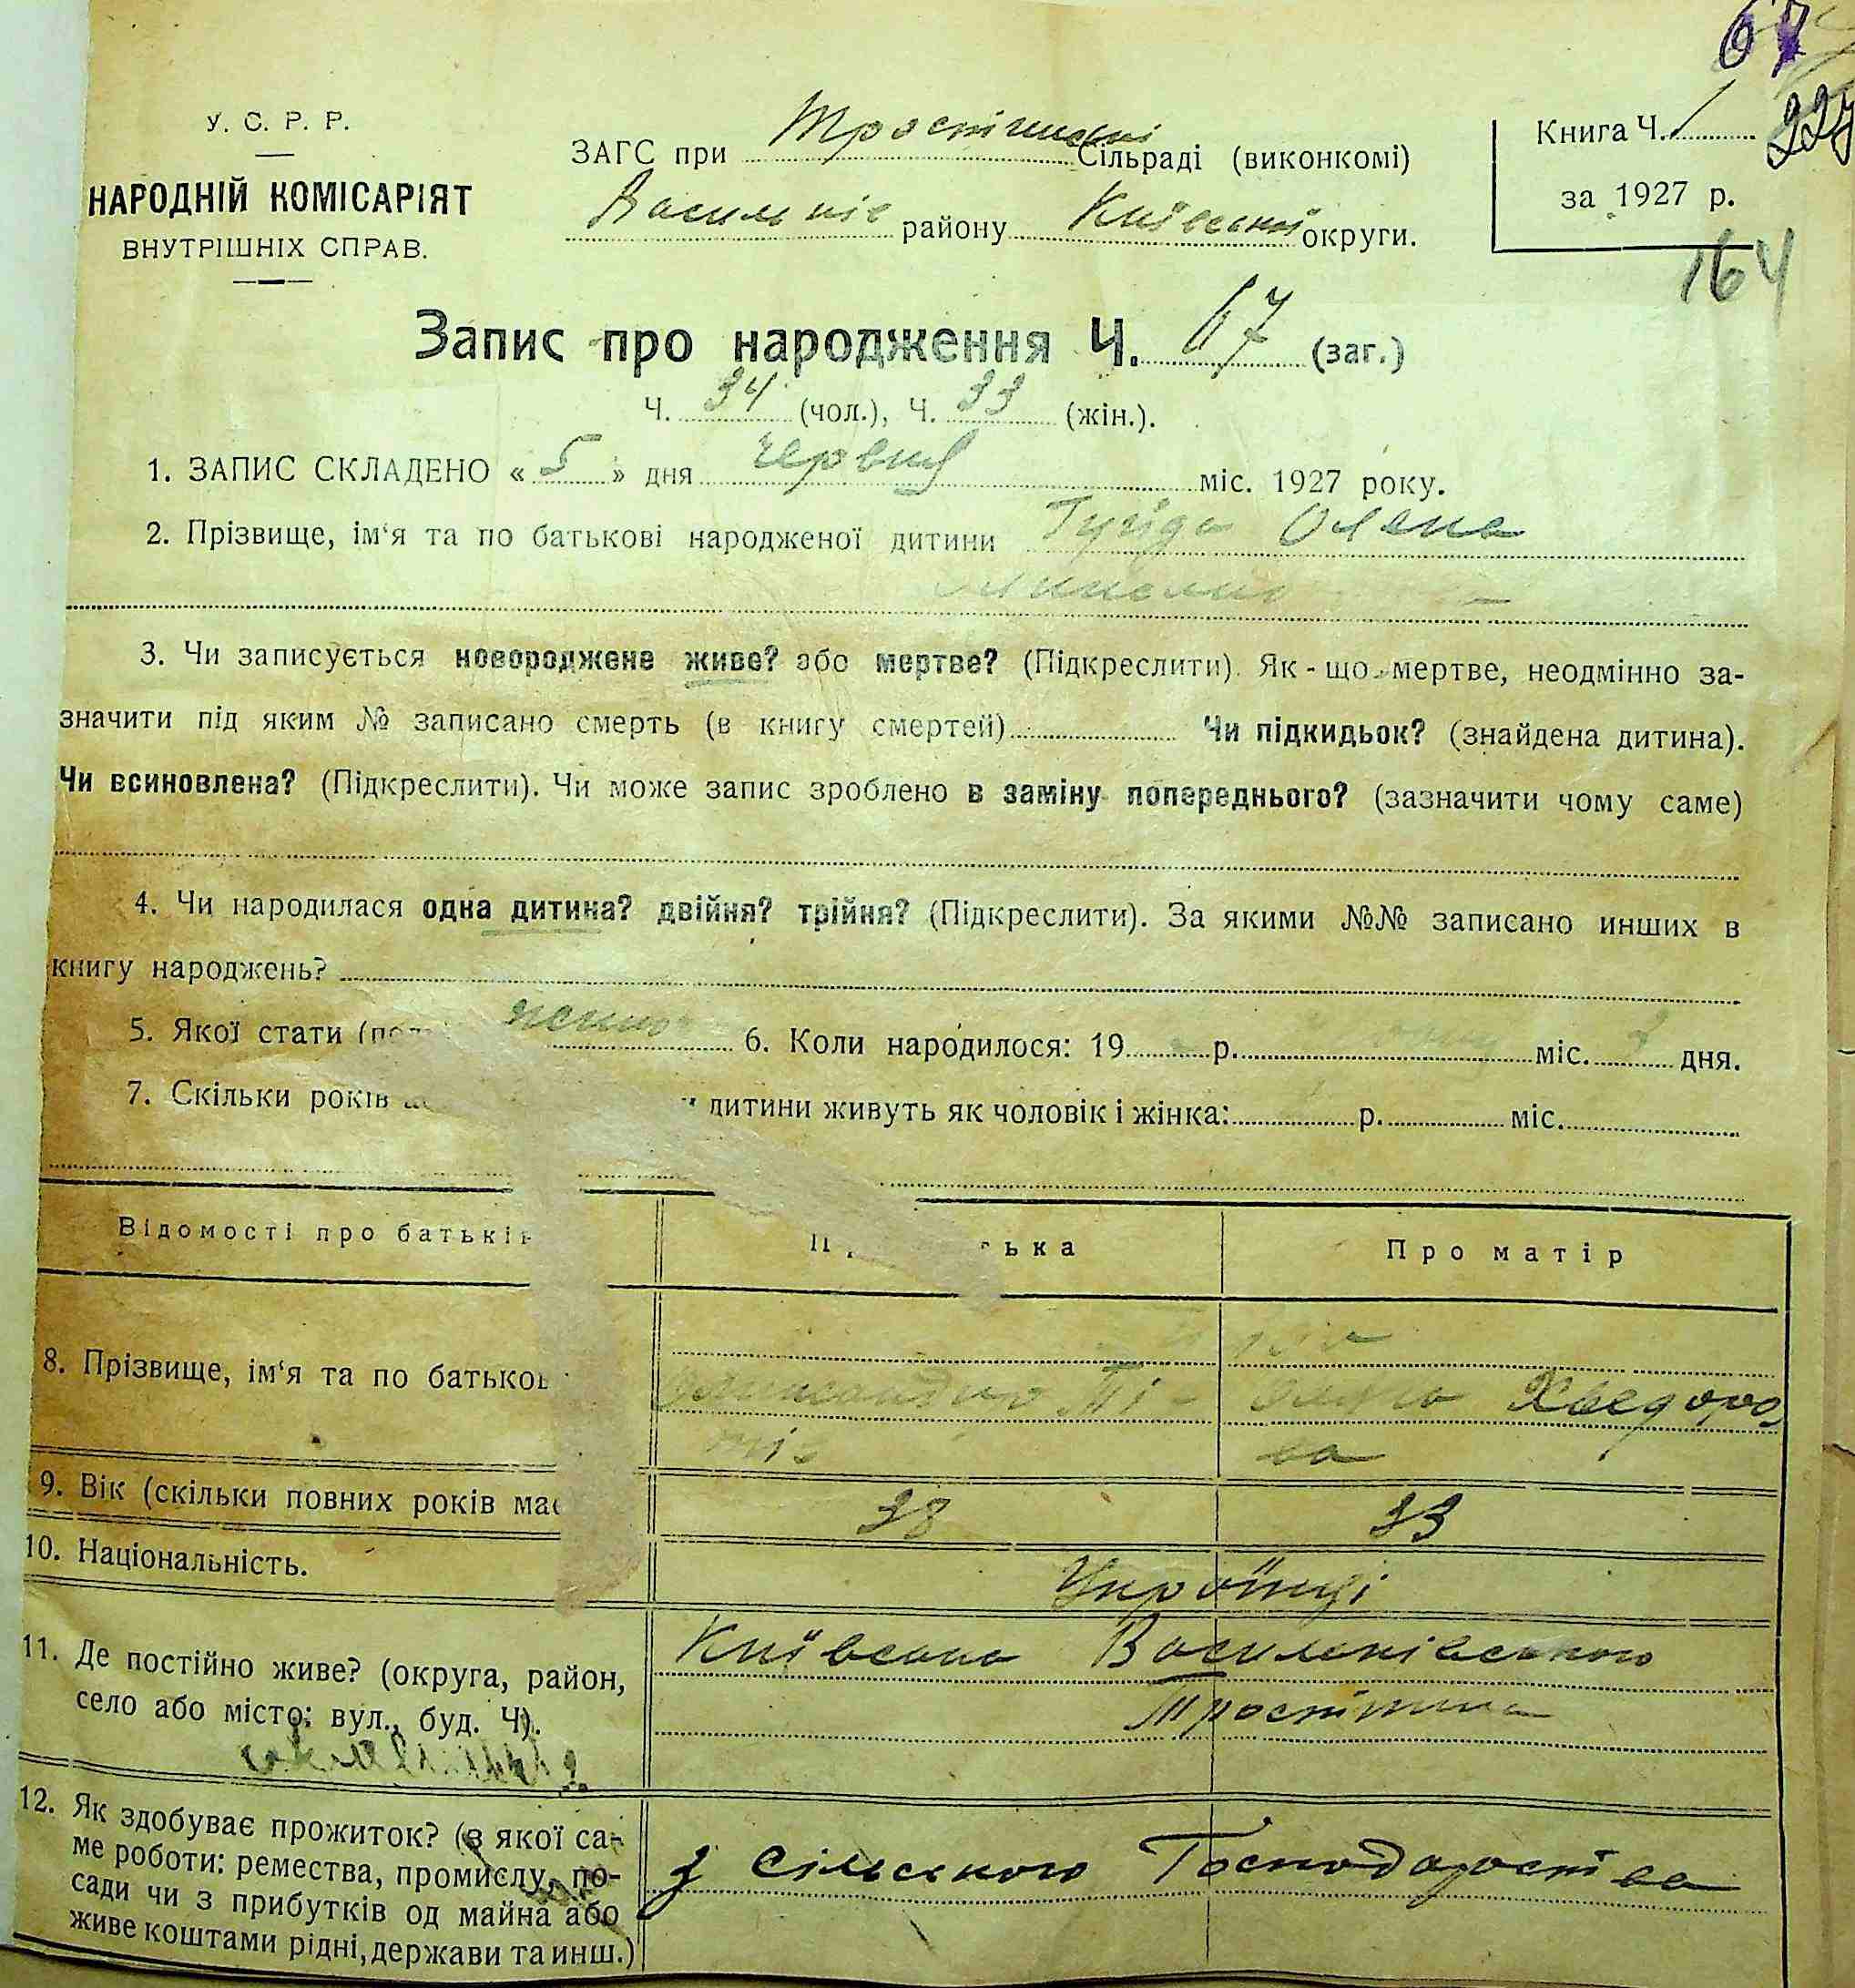 67
У. С. Р. Р.
НАРОДНІЙ КОМІСАРІЯТ
ВНУТРІШНІХ СПРАВ.
ЗАГС при Сільраді (виконкомі)
району Київської округи.
Книга Ч. 1
за 1927 р.
227
164
Запис про народження Ч. 67 (заг.)
Ч. 34 (чол.), Ч. 33 (жін.).
1. ЗАПИС СКЛАДЕНО « 5 » дня червня міс. 1927 року.
2. Прізвище, ім‘я та по батькові народженої дитини Олена
3. Чи записується новороджене живе? або мертве? (Підкреслити). Як - що мертве, неодмінно за-
значити під яким № записано смерть (в книгу смертей) Чи підкидьок? (знайдена дитина).
Чи всиновлена? (Підкреслити). Чи може запис зроблено в заміну попереднього? (зазначити чому саме)
4. Чи народилася одна дитина? двійня? трійня? (Підкреслити). За якими №№ записано инших в
книгу народжень?
5. Якої стати 6. Коли народилося: 19 р. міс. 2 дня.
7. Скільки років дитини живуть як чоловік і жінка: р. міс.
Відомості про батьків Про матір
8. Прізвище, ім‘я та по батькові Хведоро
ва
9. Вік (скільки повних років має 38 33
10. Національність. Українці
11. Де постійно живе? (округа, район,
село або місто: вул., буд. Ч).
Київська Васильківського
12. Як здобуває прожиток? (з якої са-
ме роботи: ремества, промислу, по-
сади чи з прибутків од майна або
живе коштами рідні, держави та инш.)
з Сільського Господарства